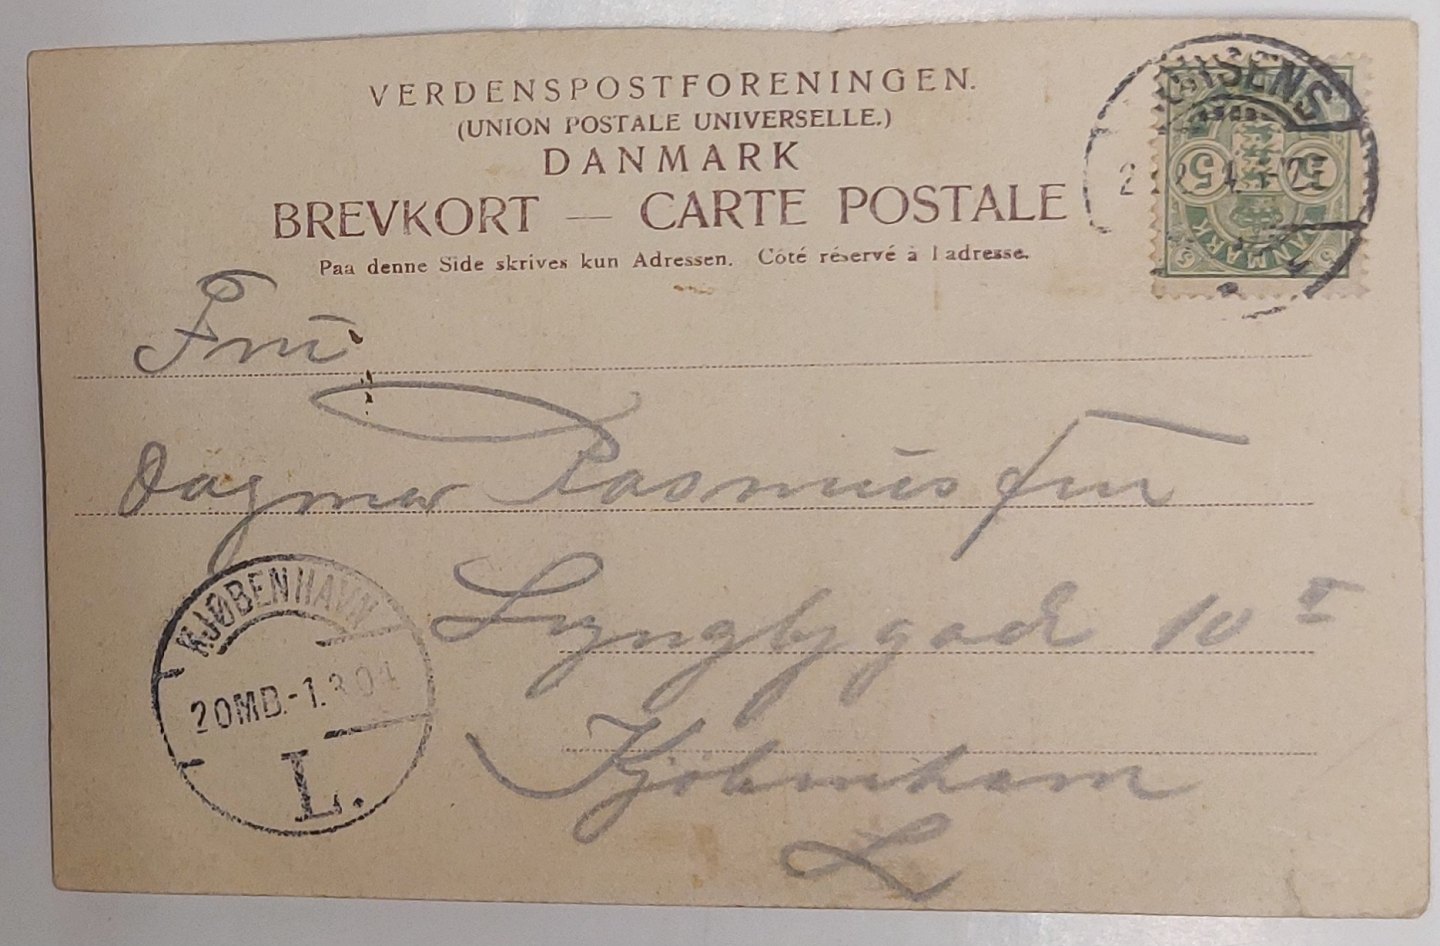 VERDENSPOSTFORENINGEN.
(UNION POSTALE UNIVERSELLE.)
DANMARK
BREVKORT — CARTE POSTALE
Paa denne Side skrives kun Adressen. Côté réservé à l adresse.
5 5
DANMARK
Fru
Dagmar Rasmussen
Lyngbygade 10
Kjöbenhavn
L
KJØBENHAVN
20MB.-1.3.04
L.